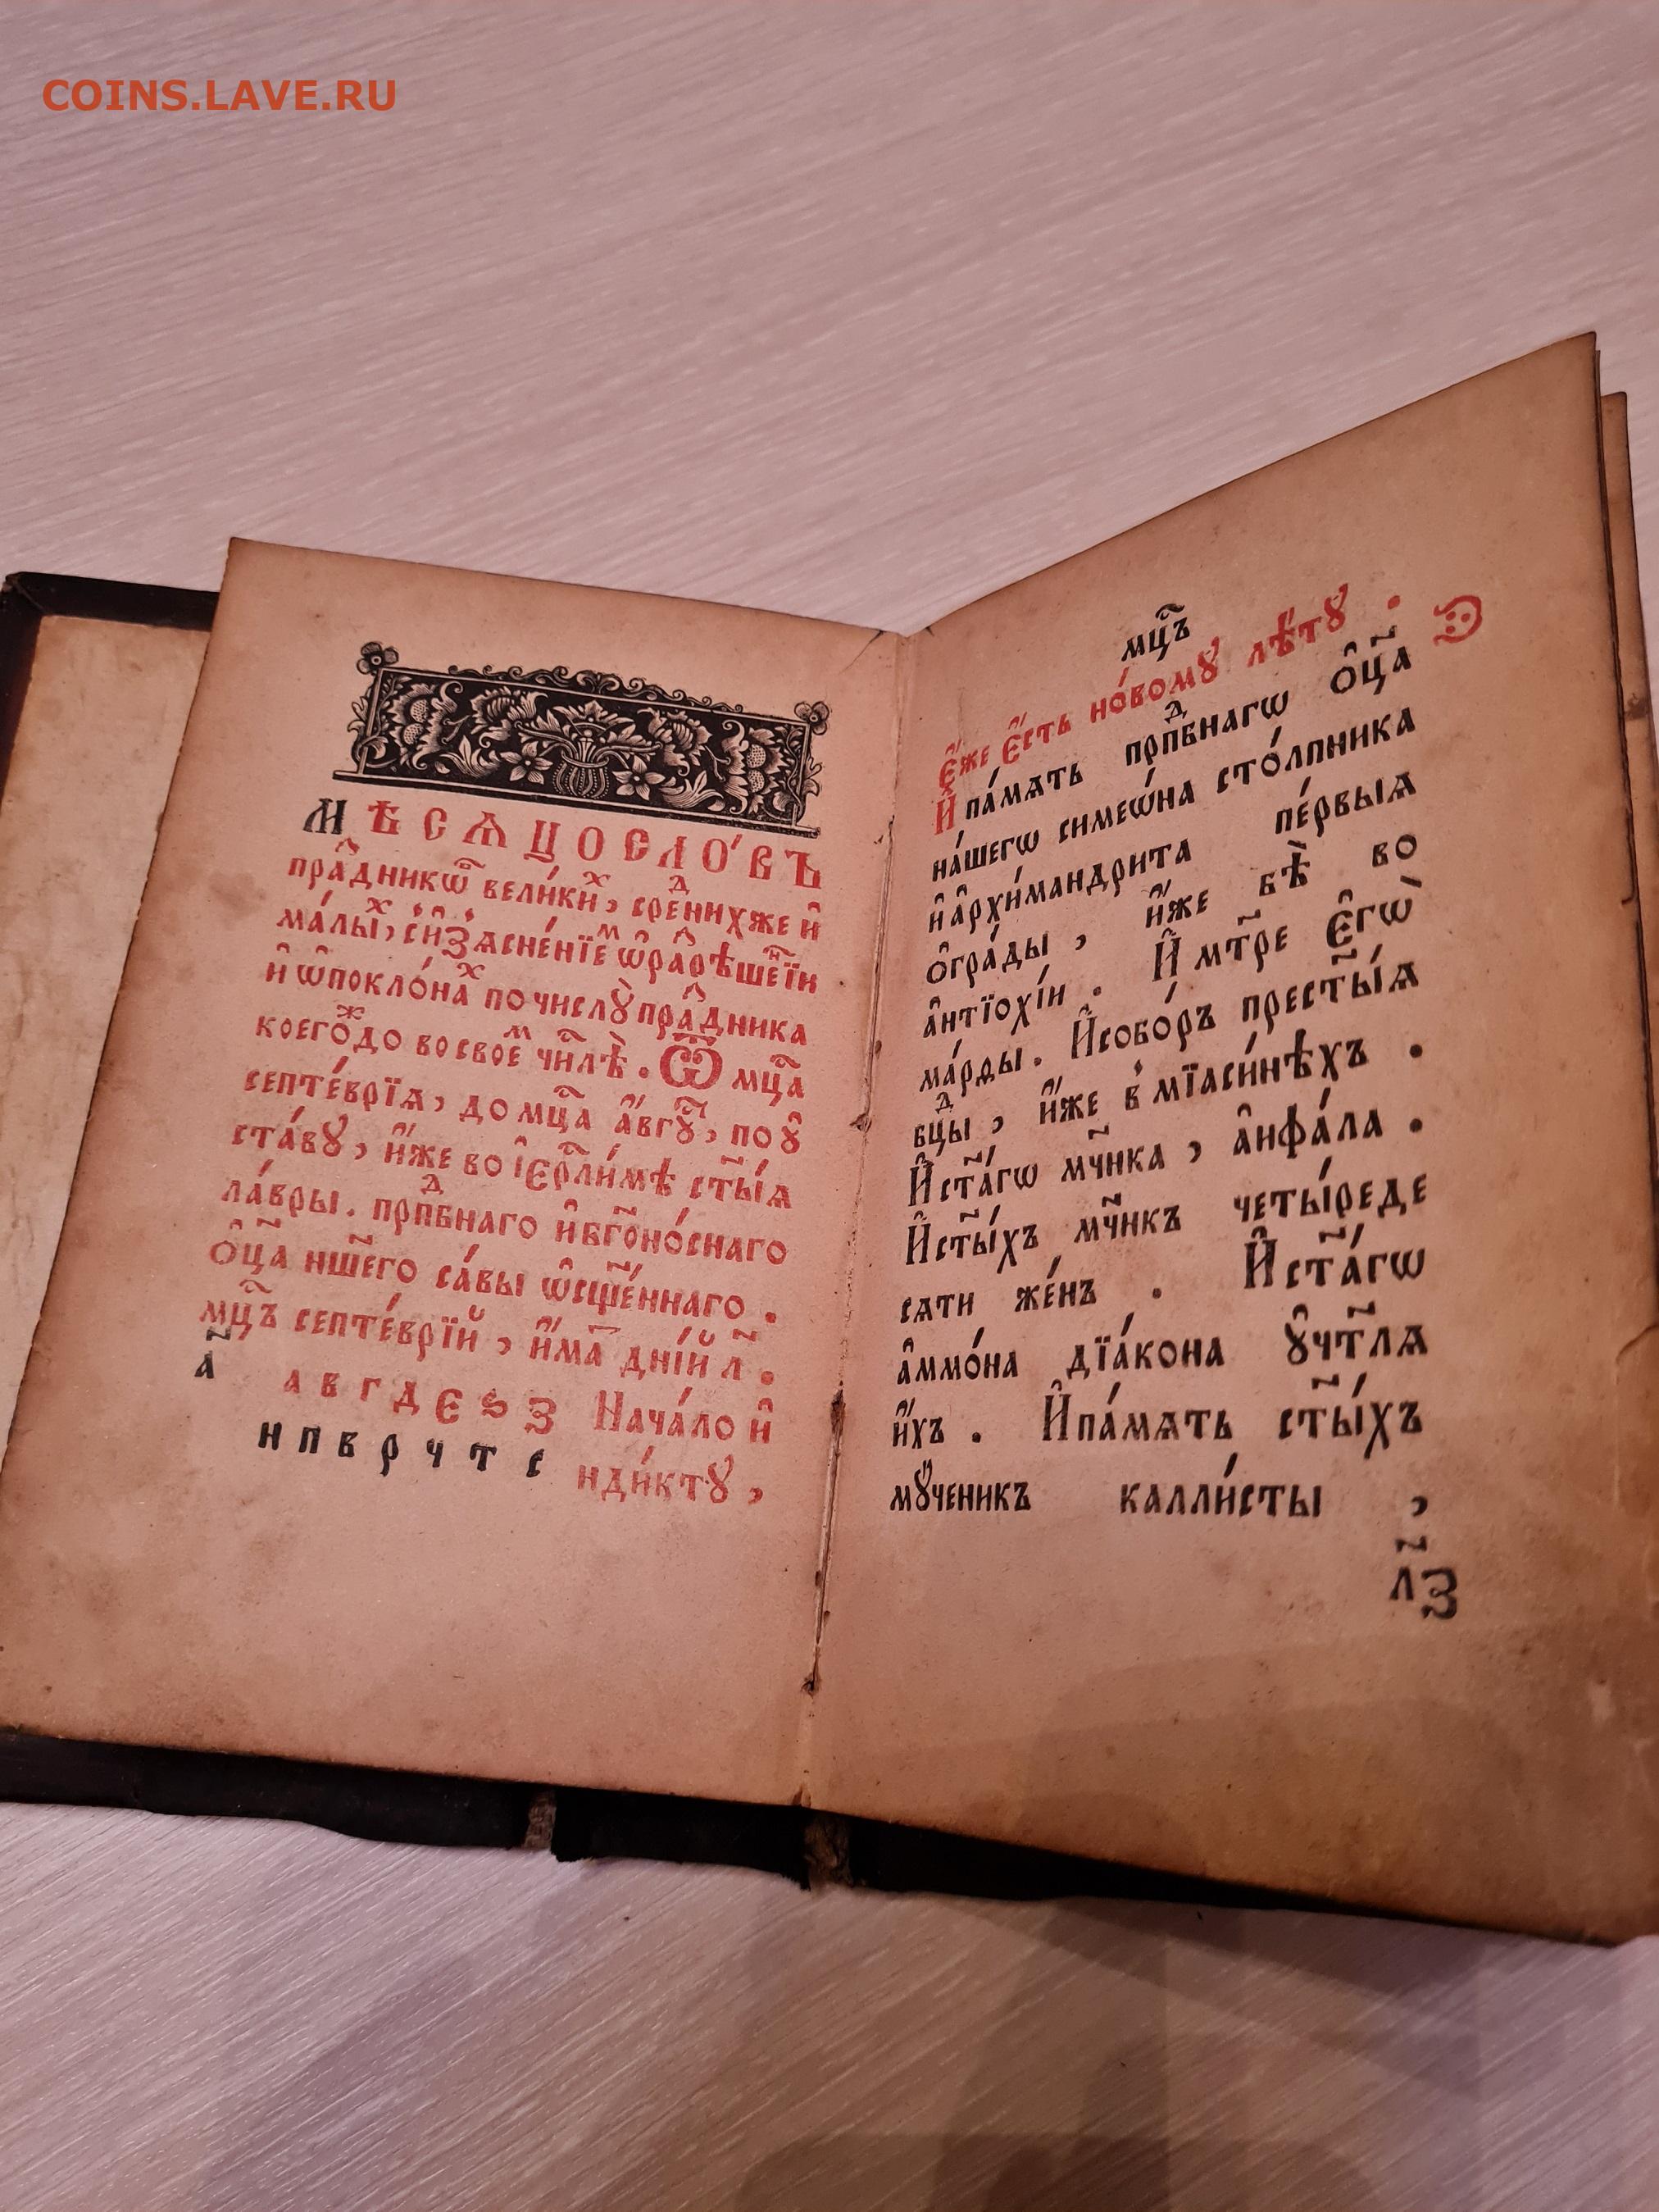 COINS.LAVE.RU
МѢСѦЦОСЛО́ВЪ
пра́дникѡ҃въ вели́кихъ, сре́днихже и҆
ма́лыⷯ, съ и҆з̾ѧсне́нїеⷨ ѡ҆ ра́зрѣше́нїи
и҆ ѡ҆ покло́наⷯ по числꙋ̀ пра́здника
коего́ⷤдо во своеⷨ чи҃лѣ̀. Ѿ мцⷭ҇а
септе́врїѧ, до мцⷭ҇а а҆́вгꙋⷭ҇, по ꙋ҆
ста́вꙋ, и҆́же во і҆ерⷭ҇ли́мѣ ст҃ы́ѧ
ла́вры. прпⷣбнаго и҆ бг҃оно́снаго
ѻ҆ц҃а нш҃его са́вы ѡ҆сщ҃е́ннаго.
мцⷭ҇ъ септе́врїй, и҆́ма дні́й л҃.
а҃ а в г д є ѕ з Нача́ло и҆
н п в р ч т с нди́ктꙋ,
мцⷭ҇ъ
є҆́же є҆́сть но́вомꙋ лѣ́тꙋ.
И҆ па́мѧть прпⷣбнагѡ ѻ҆ц҃а
на́шегѡ симеѡ́на сто́лпника
и҆ а҆рхи́мандрита пе́рвыѧ
ѻ҆гра́ды, и҆́же бѣ̀ во
а҆нтїохі́и. И҆ мт҃ре є҆гѡ̀
ма́рды. И҆ собо́ръ прест҃ы́ѧ
бцⷣы, и҆́же в̾ мїаси́нѣхъ.
И҆ ст҃а́гѡ мч҃нка, а҆нфа́ла.
И҆ ст҃ы́хъ мч҃нкъ четы́реде
сѧти же́нъ. И҆ ст҃а́гѡ
а҆ммо́на дїа́кона ᲂу҆чт҃лѧ
и҆́хъ. И҆ па́мѧть ст҃ы́хъ
мꙋ́ченикъ калли́сты,
л҃з